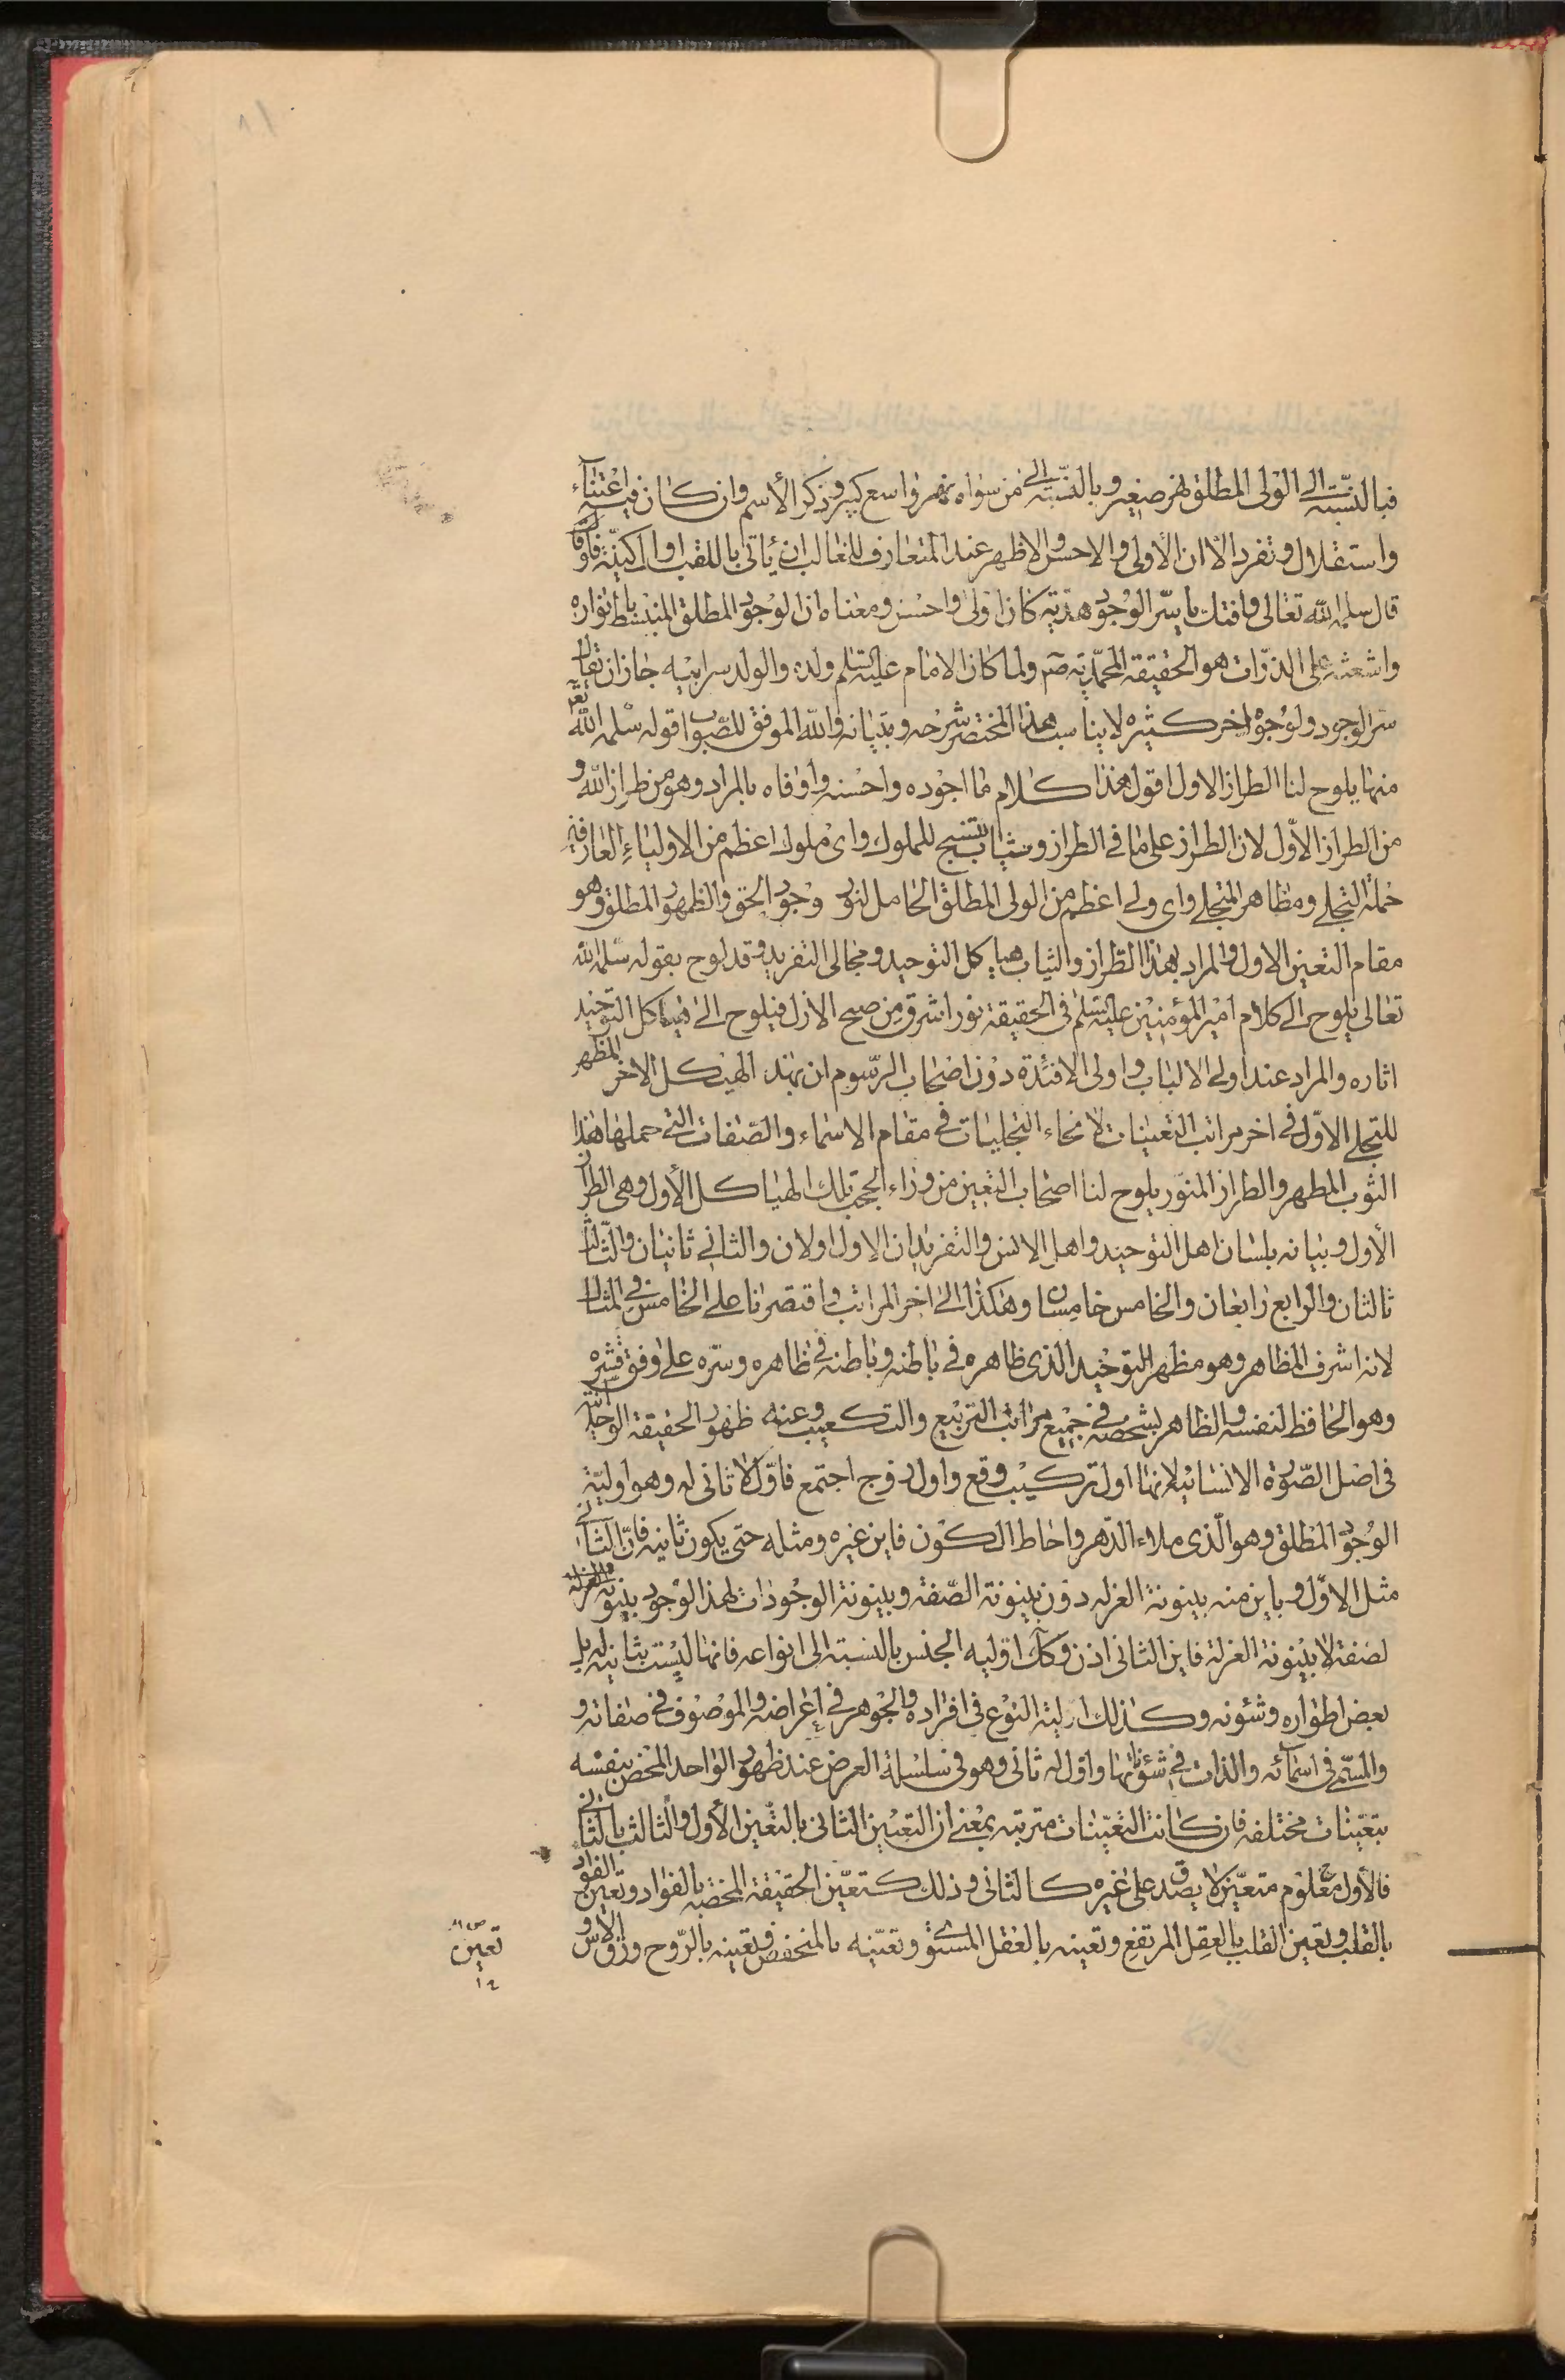 فبالنسبة الى الولى المطلق نهر صغير وبالنسبة الى من سواه نهر واسع كبير وذكر الأسم وان كان فيه اعتناء
واستقلال وتفرد الا ان الأولى والاحسن والاظهر عند المتعارف الغالب ان يأتى باللقب او الكنية فلو
قال سلمه الله تعالى وافتك يا سر الوجود هدية كان اولى واحسن ومعناه ان الوجود المطلق المنبسط بانواره
واشعته على الذرات هو الحقيقة المحمدية صم ولما كان الامام عليه السلم ولده والولد سر ابيه جاز ان يقال
سر الوجود ولوجوه اخر كثيرة لا يناسب هذا المختصر شرحه وبيانه والله الموفق للصواب قوله سلمه الله تع
منها يلوح لنا الطراز الاول اقول هذا كلام ما اجوده واحسنه واوفاه بالمراد وهو من طراز الله و
من الطراز الاول لان الطراز على ما فى الطراز وثياب تنسج للملوك واى ملوك اعظم من الاولياء العارفين
حملة التجلى ومظاهر المتجلى واى ولى اعظم من الولى المطلق الحامل لنور وجود الحق والظهور المطلق وهو
مقام التعين الاول والمراد بهذا الطراز والثياب هياكل التوحيد ومجالى التفريد وقد لوح بقوله سلمه الله
تعالى يلوح الى كلام امير المؤمنين عليه السلم فى الحقيقة نور اشرق من صبح الازل فيلوح الى هياكل التوحيد
اثاره والمراد عند اولى الالباب واولى الافئدة دون اصحاب الرسوم ان بهذا الهيكل الاخر المظهر
للتجلى الاول فى اخر مراتب التعينات لانحاء التجليات فى مقام الاسماء والصفات التى حملها هذا
الثوب المطهر والطراز المنور يلوح لنا اصحاب التعين من وراء الحجب تلك الهياكل الأول وهى الطراز
الأول وبيانه بلسان اهل التوحيد واهل الانس والتفريد ان الاول اولان والثانى ثانيان والثالث
ثالثان والرابع رابعان والخامس خامسان وهكذا الى اخر المراتب واقتصرنا على الخامس فى المثال
لانه اشرف المظاهر وهو مظهر التوحيد الذى ظاهره فى باطنه وباطنه فى ظاهره وسره على وفق قشره
وهو الحافظ لنفسه والظاهر بشخصه فى جميع مراتب التربيع والتكعيب وعنه ظهور الحقيقة الوحدانية
فى اصل الصورة الانسانية لانها اول تركيب وقع واول زوج اجتمع فاول لا ثانى له وهو اولية
الوجود المطلق وهو الذى ملاء الدهر واحاط الكون فاين غيره ومثله حتى يكون ثانيه فان الثانى
مثل الاول وباين منه بينونة العزله دون بينونة الصفة وبينونة الوجودات لهذا الوجود بينونة
لصفة لا بينونة العزلة فاين الثانى اذن وكك اولية الجنس بالنسبة الى انواعه فانها ليست بثانية له بل
بعض اطواره وشئونه وكذلك اولية النوع فى افراده والجوهر فى اعراضه والموصوف فى صفاته و
والمسمى فى اسمائه والذات فى شئونها واول له ثانى وهو فى سلسلة العرض عند ظهور الواحد المحض بنفسه
بتعينات مختلفه فان كانت التعينات مترتبه بمعنى ان التعين الثانى بالتعين الأول والثالث بالثانى
فالأول معلوم متعين لا يصدق على غيره كالثانى وذلك كتعين الحقيقة المختصه بالفواد وتعين الفواد
بالقلب وتعين القلب بالعقل المرتفع وتعينه بالعقل المستوى وتعينه بالمنخفض وتعينه بالروح ورق الاس و
تعين